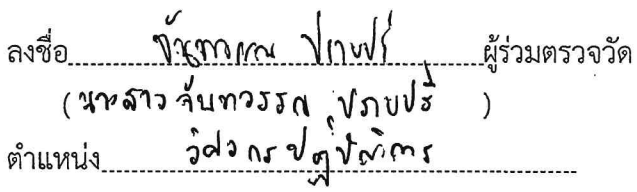 ลงชื่อ จันทวรรณ ปราบปรี ผู้ร่วมตรวจวัด
(นางสาวจันทวรรณ ปราบปรี)
ตำแหน่ง วิศวกรปฏิบัติการ